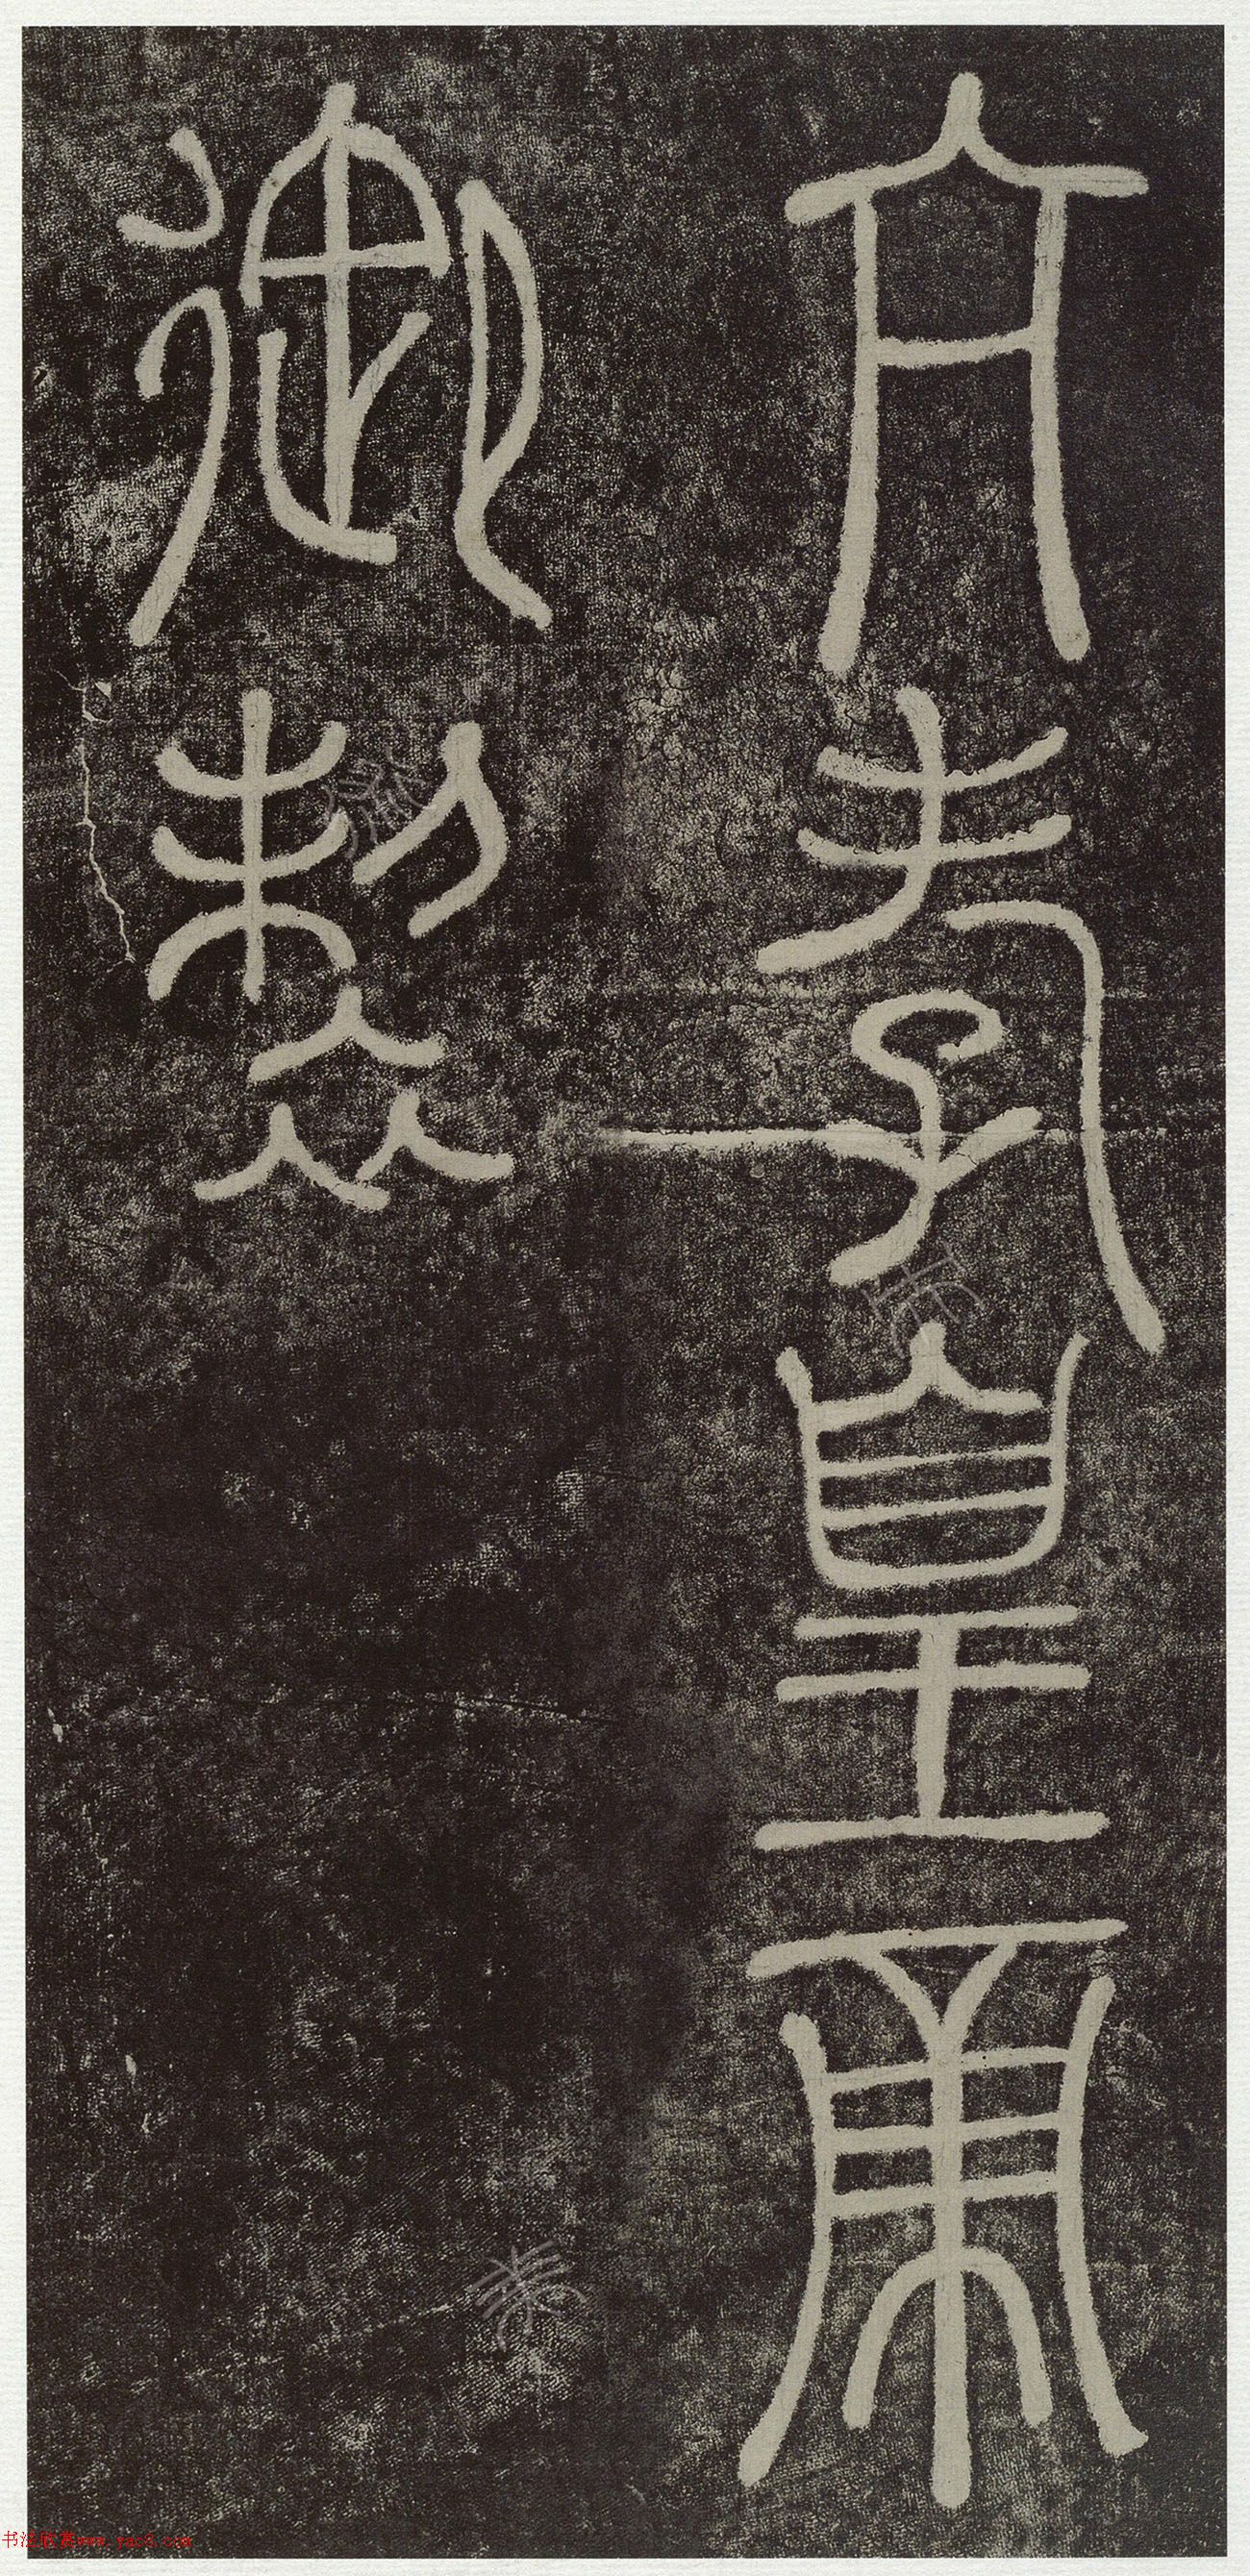 孝皇帝
御製
书法欣赏www.yac8.com